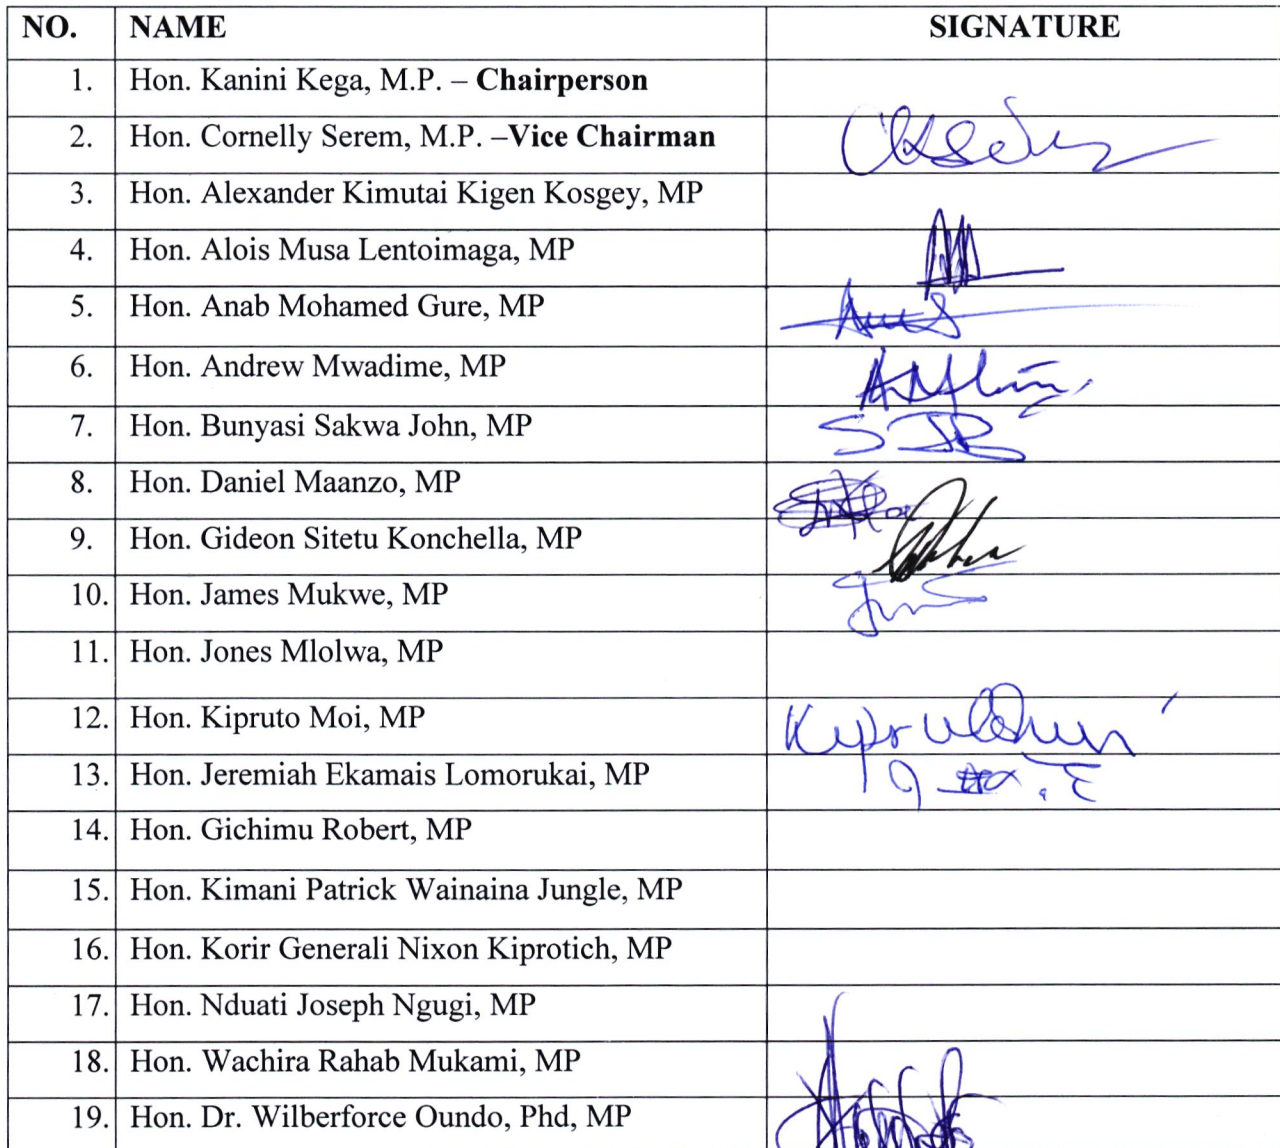 NO. NAME SIGNATURE
1. Hon. Kanini Kega, M.P. – Chairperson
2. Hon. Cornelly Serem, M.P. –Vice Chairman
3. Hon. Alexander Kimutai Kigen Kosgey, MP
4. Hon. Alois Musa Lentoimaga, MP
5. Hon. Anab Mohamed Gure, MP
6. Hon. Andrew Mwadime, MP
7. Hon. Bunyasi Sakwa John, MP
8. Hon. Daniel Maanzo, MP
9. Hon. Gideon Sitetu Konchella, MP
10. Hon. James Mukwe, MP
11. Hon. Jones Mlolwa, MP
12. Hon. Kipruto Moi, MP
13. Hon. Jeremiah Ekamais Lomorukai, MP
14. Hon. Gichimu Robert, MP
15. Hon. Kimani Patrick Wainaina Jungle, MP
16. Hon. Korir Generali Nixon Kiprotich, MP
17. Hon. Nduati Joseph Ngugi, MP
18. Hon. Wachira Rahab Mukami, MP
19. Hon. Dr. Wilberforce Oundo, Phd, MP